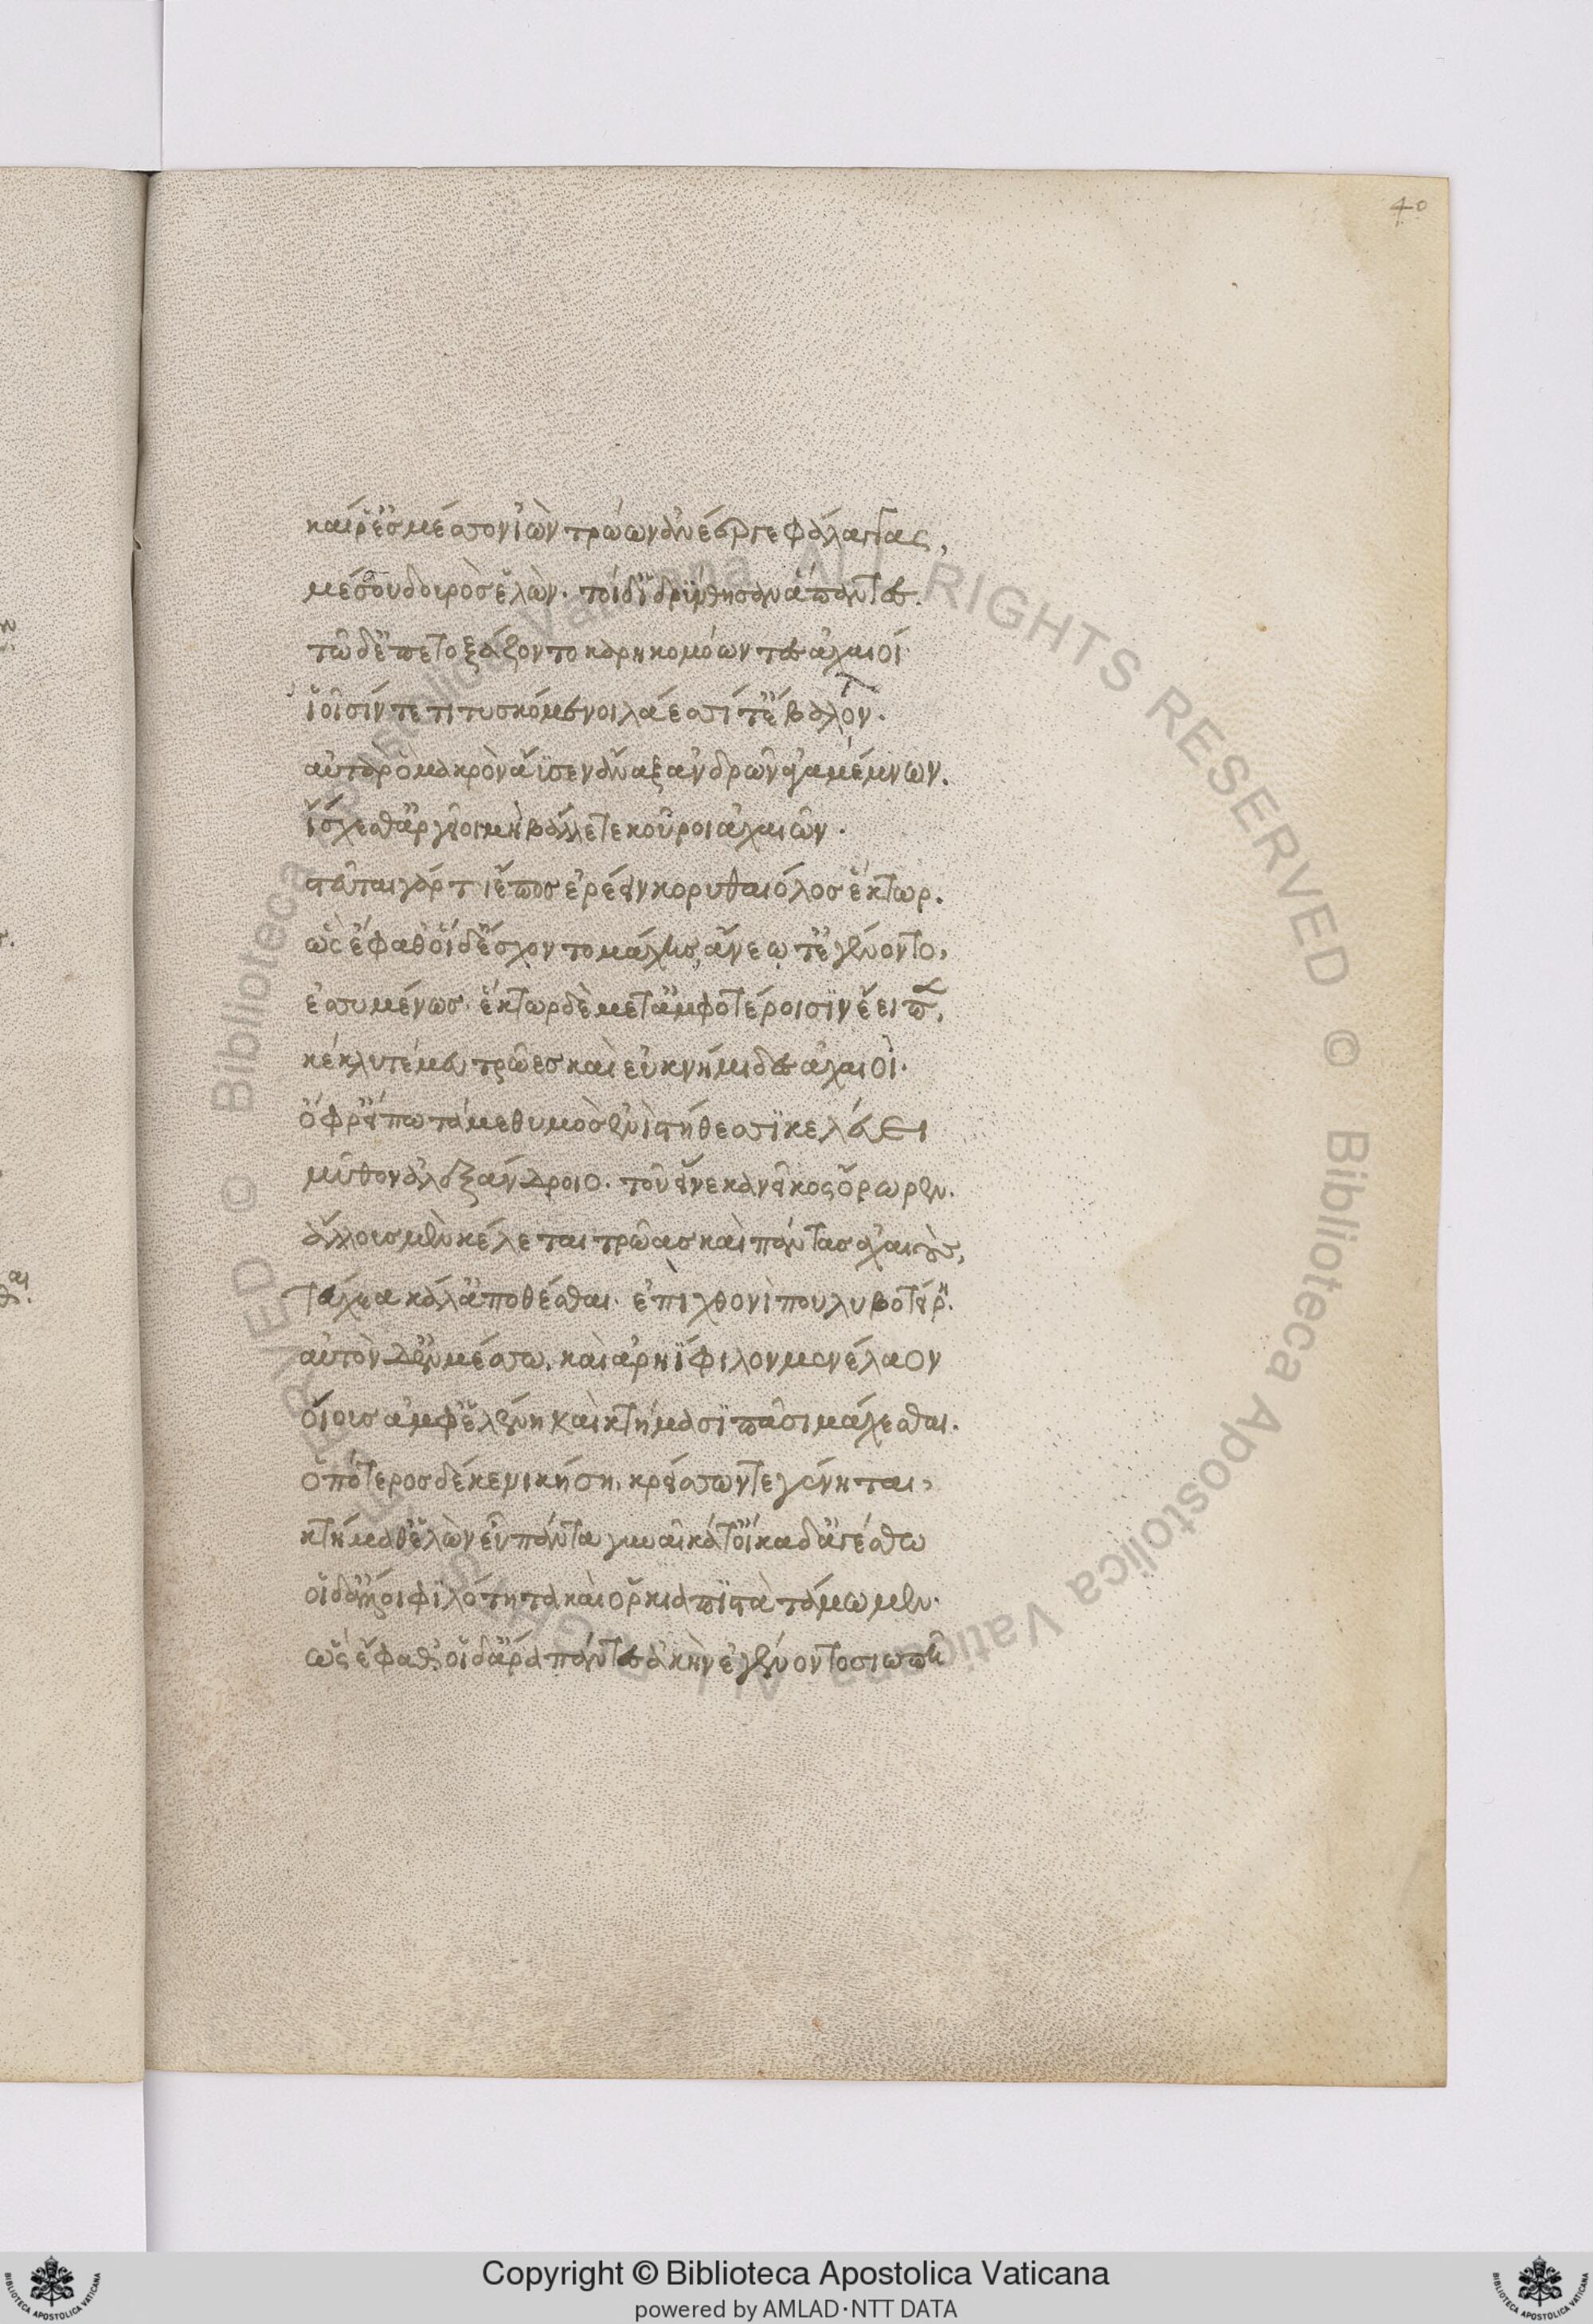 40
καί ῥ' ἐς μέσσον ἰὼν τρώων ἀνέεργε φάλαγγας,
μέσσου δουρὸς ἑλών. τοὶ δ' ἱδρύνθησαν ἅπαντες.
τῶ δ' ἐπετοξάζοντο καρηκομόωντες ἀχαιοί
ἰοῖσίν τε τιτυσκόμενοι λάεσσί τ' ἔβαλλον.
αὐτὰρ ὁ μακρὸν ἄϋσεν ἄναξ ἀνδρῶν ἀγαμέμνων.
ἴσχεσθ' ἀργεῖοι μὴ βάλλετε κοῦροι ἀχαιῶν.
στεῦται γάρ τι ἔπος ἐρέειν κορυθαιόλος ἕκτωρ.
ὣς ἔφαθ' οἱ δ' ἔσχοντο μάχης, ἄνεῳ τ' ἐγένοντο,
ἐσσυμένως. ἕκτωρ δὲ μετ' ἀμφοτέροισϊν ἔειπε,
κέκλυτέ μευ τρῶες καὶ εὐκνήμιδες ἀχαιοί.
ὄφρ' εἴπω τά με θυμὸς ἐνὶ στήθεσσϊ κελεύει
μῦθον ἀλεξάνδροιο. τοῦ εἵνεκα νεῖκος ὄρωρεν.
ἄλλους μὲν κέλεται τρῶας καὶ πάντας ἀχαιοὺς,
τεύχεα κάλ' ἀποθέσθαι. ἐπὶ χθονὶ πουλυβοτείρῃ.
αὐτὸν δ' ἐν μέσσω. καὶ ἀρηΐφιλον μενέλαον
οἴους ἀμφ' ἑλένη καὶ κτήμασϊ πᾶσι μάχεσθαι.
ὁππότερος δέ κε νικήση, κρείσσων τε γένηται,
κτήμαθ' ἑλὼν εὖ πάντα γυναῖκά τ' οἴκαδ' ἀγέσθω
οἱ δ' ἄλλοι φιλότητα καὶ ὅρκια πϊστὰ τάμωμεν.
ὣς ἔφαθ', οἱ δ' ἄρα πάντες ἀκὴν ἐγένοντο σιωπῆ
Copyright © Biblioteca Apostolica Vaticana
powered by AMLAD·NTT DATA